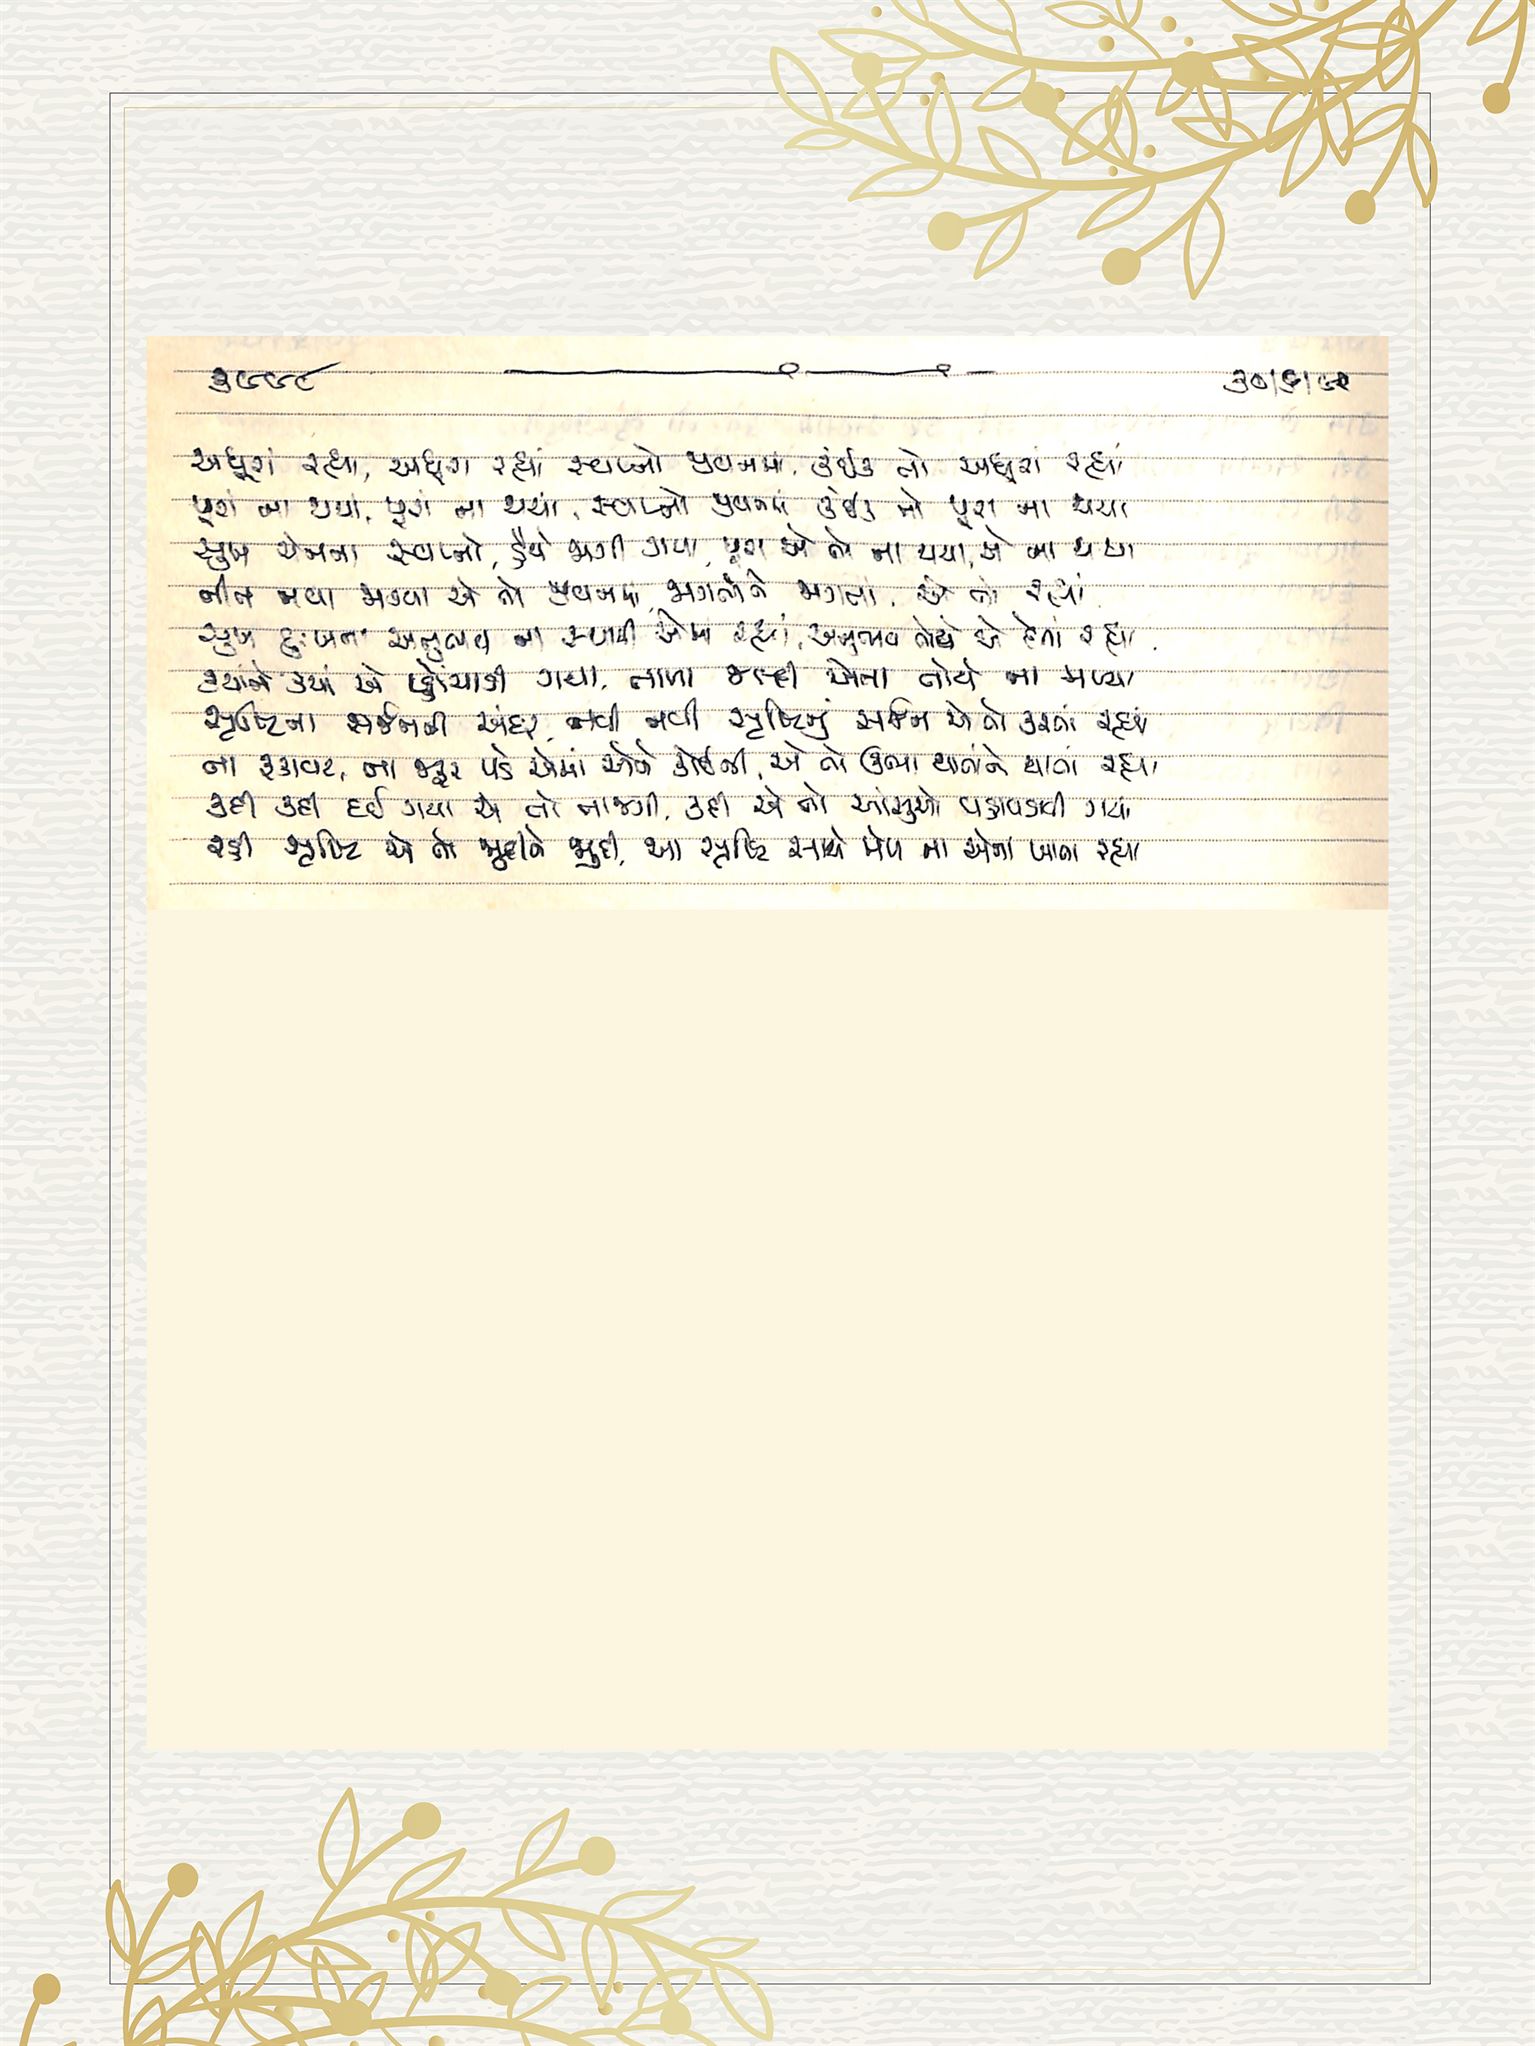 ૩૯૯૮ ૩૦/૬/૯૨
અધૂરાં રહ્યા, અધૂરા રહ્યાં સ્વપ્નો જીવનમાં, કંઈક તો અધૂરાં રહ્યાં
પૂરાં ના થયાં, પૂરાં ના થયાં, સ્વપ્નો જીવનમાં કંઈક તો પૂરા ના થયા
સુખ ચેનના સ્વપ્નો, હૈયે જાગી ગયા, પૂરા એ તો ના થયા, એ ના થયા
નીત નવા જાગ્યા એ તો જીવનમાં, જાગતાંને જાગતાં, એ તો રહ્યાં
સુખ દુઃખના અનુભવ ના સ્થાયી એમાં રહ્યાં, અનુભવ તોયે એ દેતાં રહ્યા
ક્યાંને ક્યાં એ પહોંચાડી ગયા, તાળા જલ્દી એના તોયે ના મળ્યા
સૃષ્ટિના સર્જનની અંદર, નવી નવી સૃષ્ટિનું સર્જન એ તો કરતાં રહ્યાં
ના રુકાવટ, ના જરૂર પડે એમાં એને કોઈની, એ તો ઊભા થાતાંને થાતાં રહ્યા
કદી કદી દઈ ગયા એ તો તાજગી, કદી એ તો આંસુઓ પડાવડાવી ગયા
રહી સૃષ્ટિ એ તો જુદીને જુદી, આ સૃષ્ટિ સાથે મેળ ના એના ખાતા રહ્યા